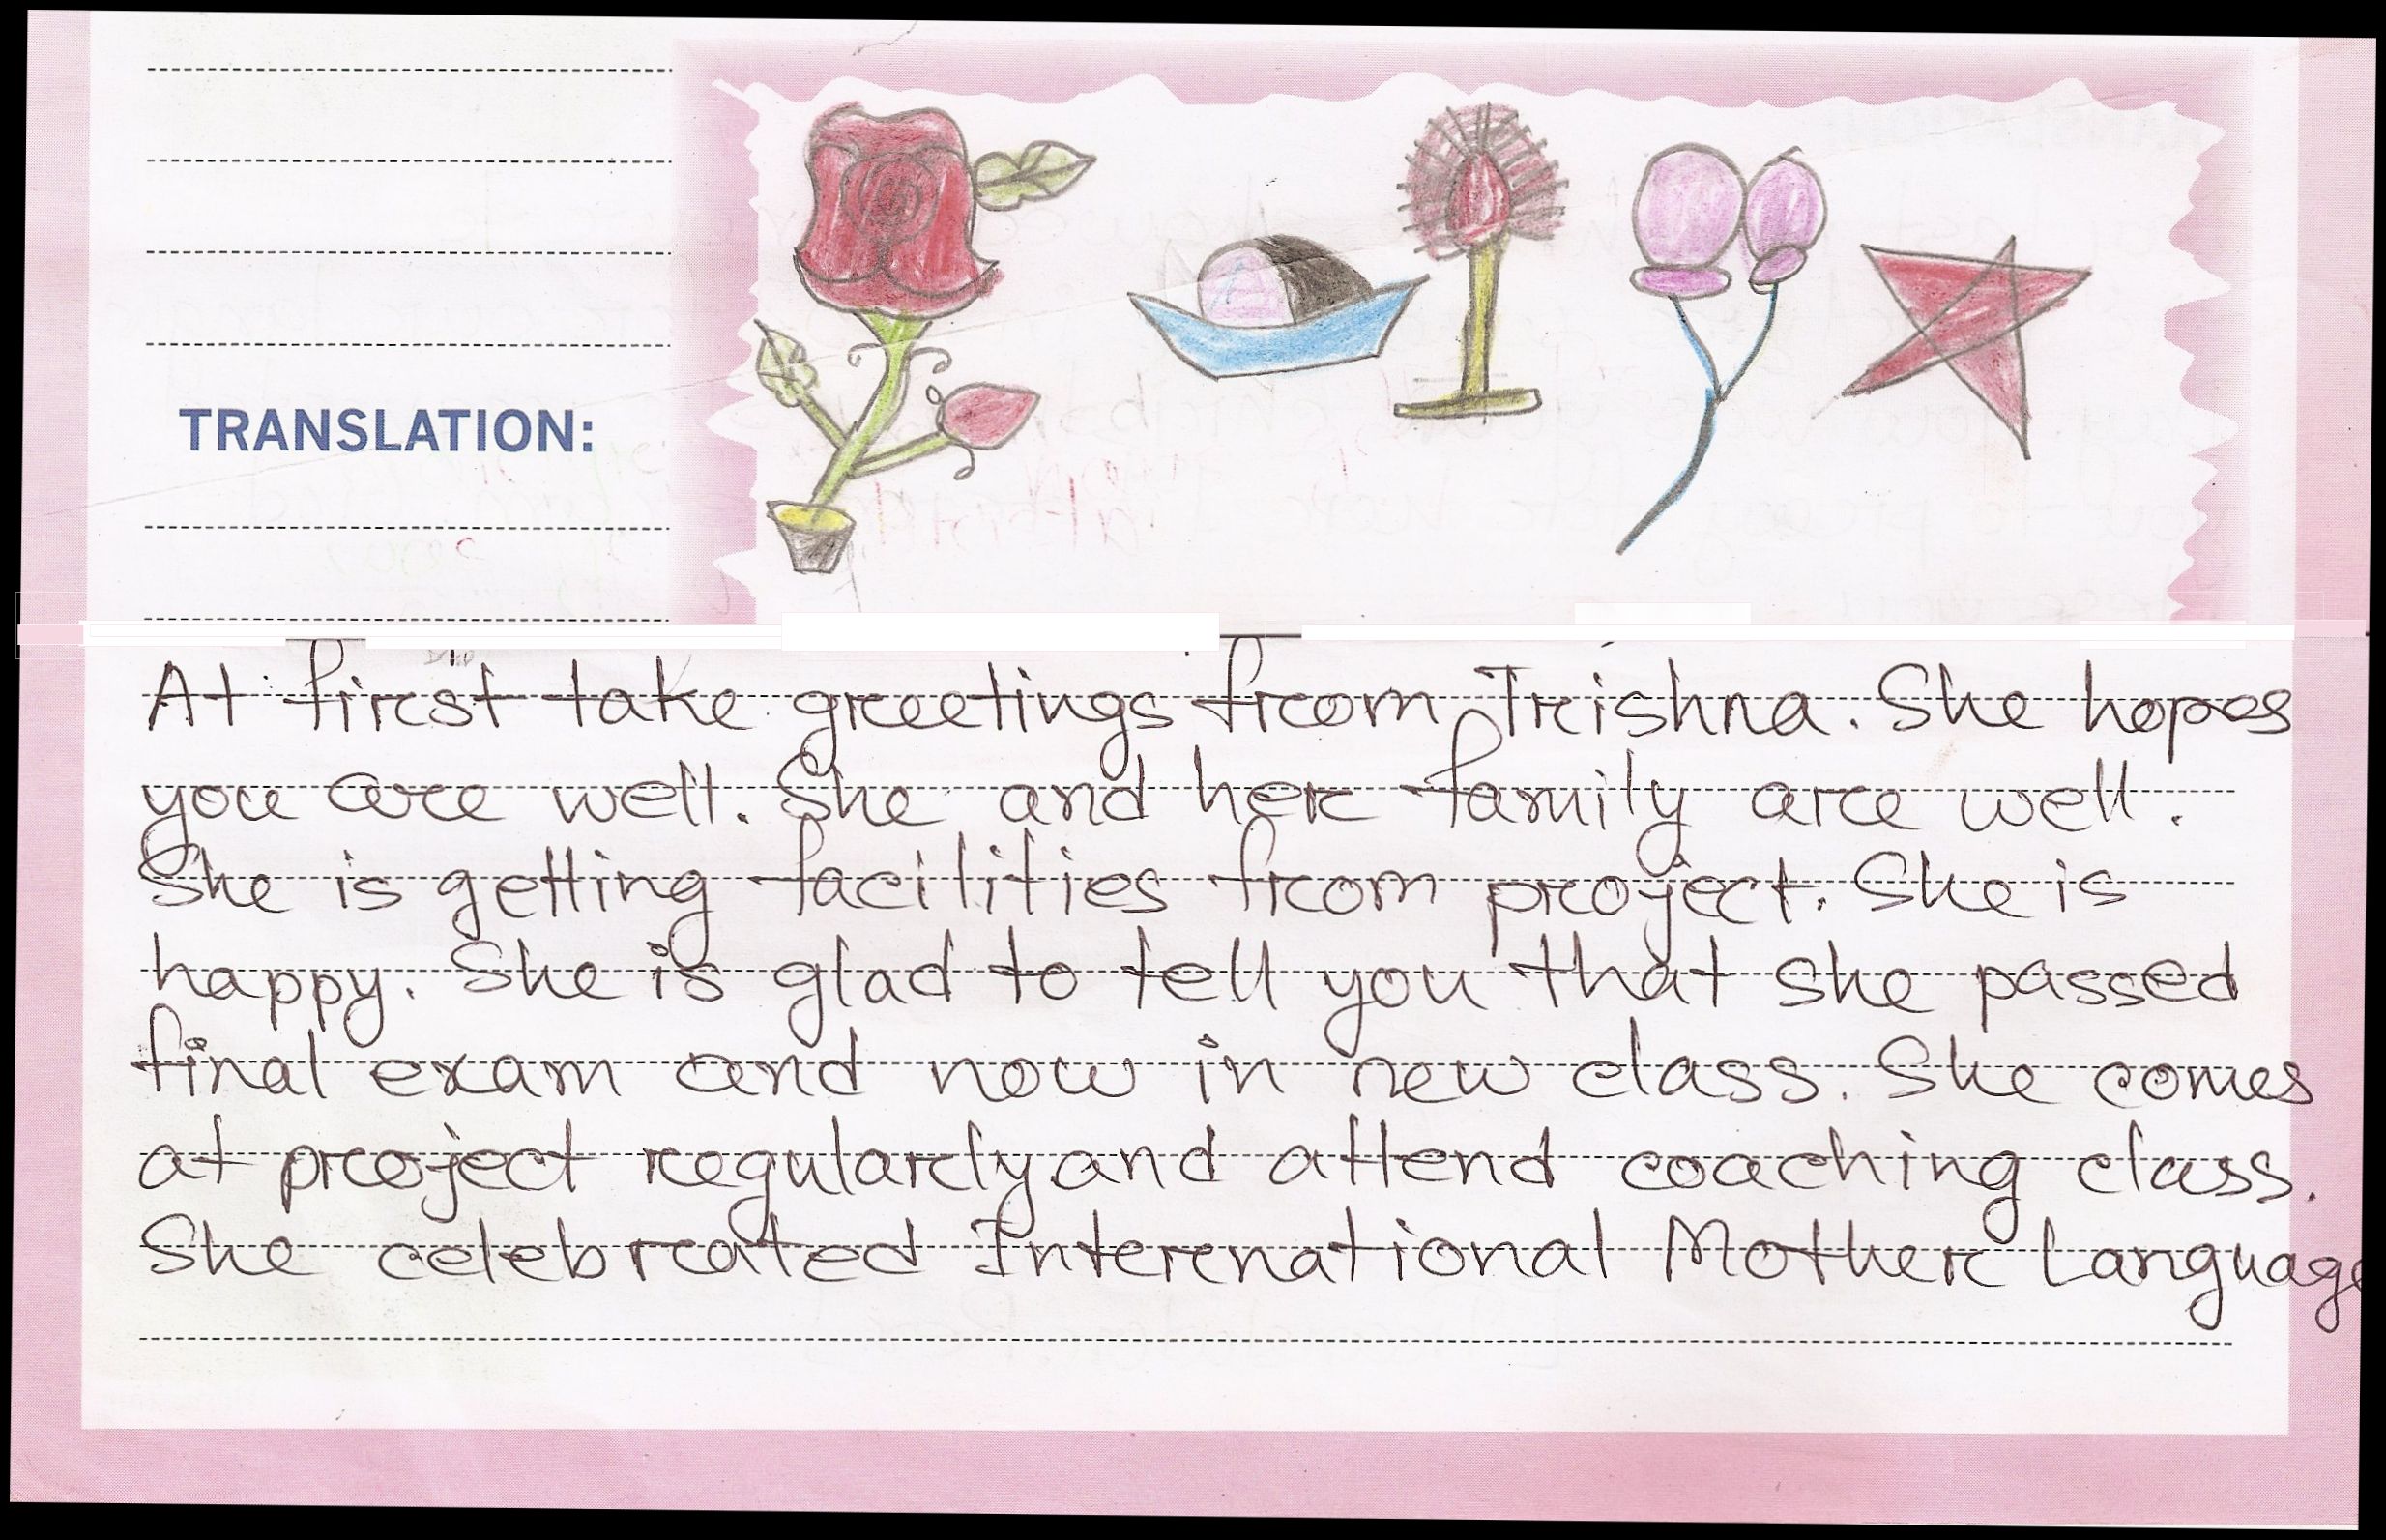 TRANSLATION:
At first take greetings from Trishna. She hopes
you are well. She and her family are well.
She is getting facilities from project. She is
happy. She is glad to tell you that she passed
final exam and now in new class. She comes
at project regularly and attend coaching class.
She celebrated International Mother Language